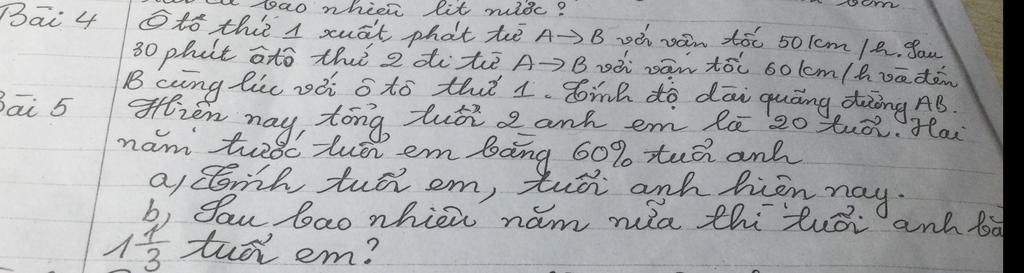 bao nhiêu lít nước?
Bài 4 Ô tô thứ 1 xuất phát từ A→B với vận tốc 50 km/h. Sau
30 phút ôtô thứ 2 đi từ A→B với vận tốc 60 km/h và đến
B cùng lúc với ô tô thứ 1. Tính độ dài quãng đường AB.
Bài 5 Hiện nay, tổng tuổi 2 anh em là 20 tuổi. Hai
năm trước, tuổi em bằng 60% tuổi anh
a, Tính tuổi em, tuổi anh hiện nay.
b, Sau bao nhiêu năm nữa thì tuổi anh bằ
1 1/3 tuổi em?